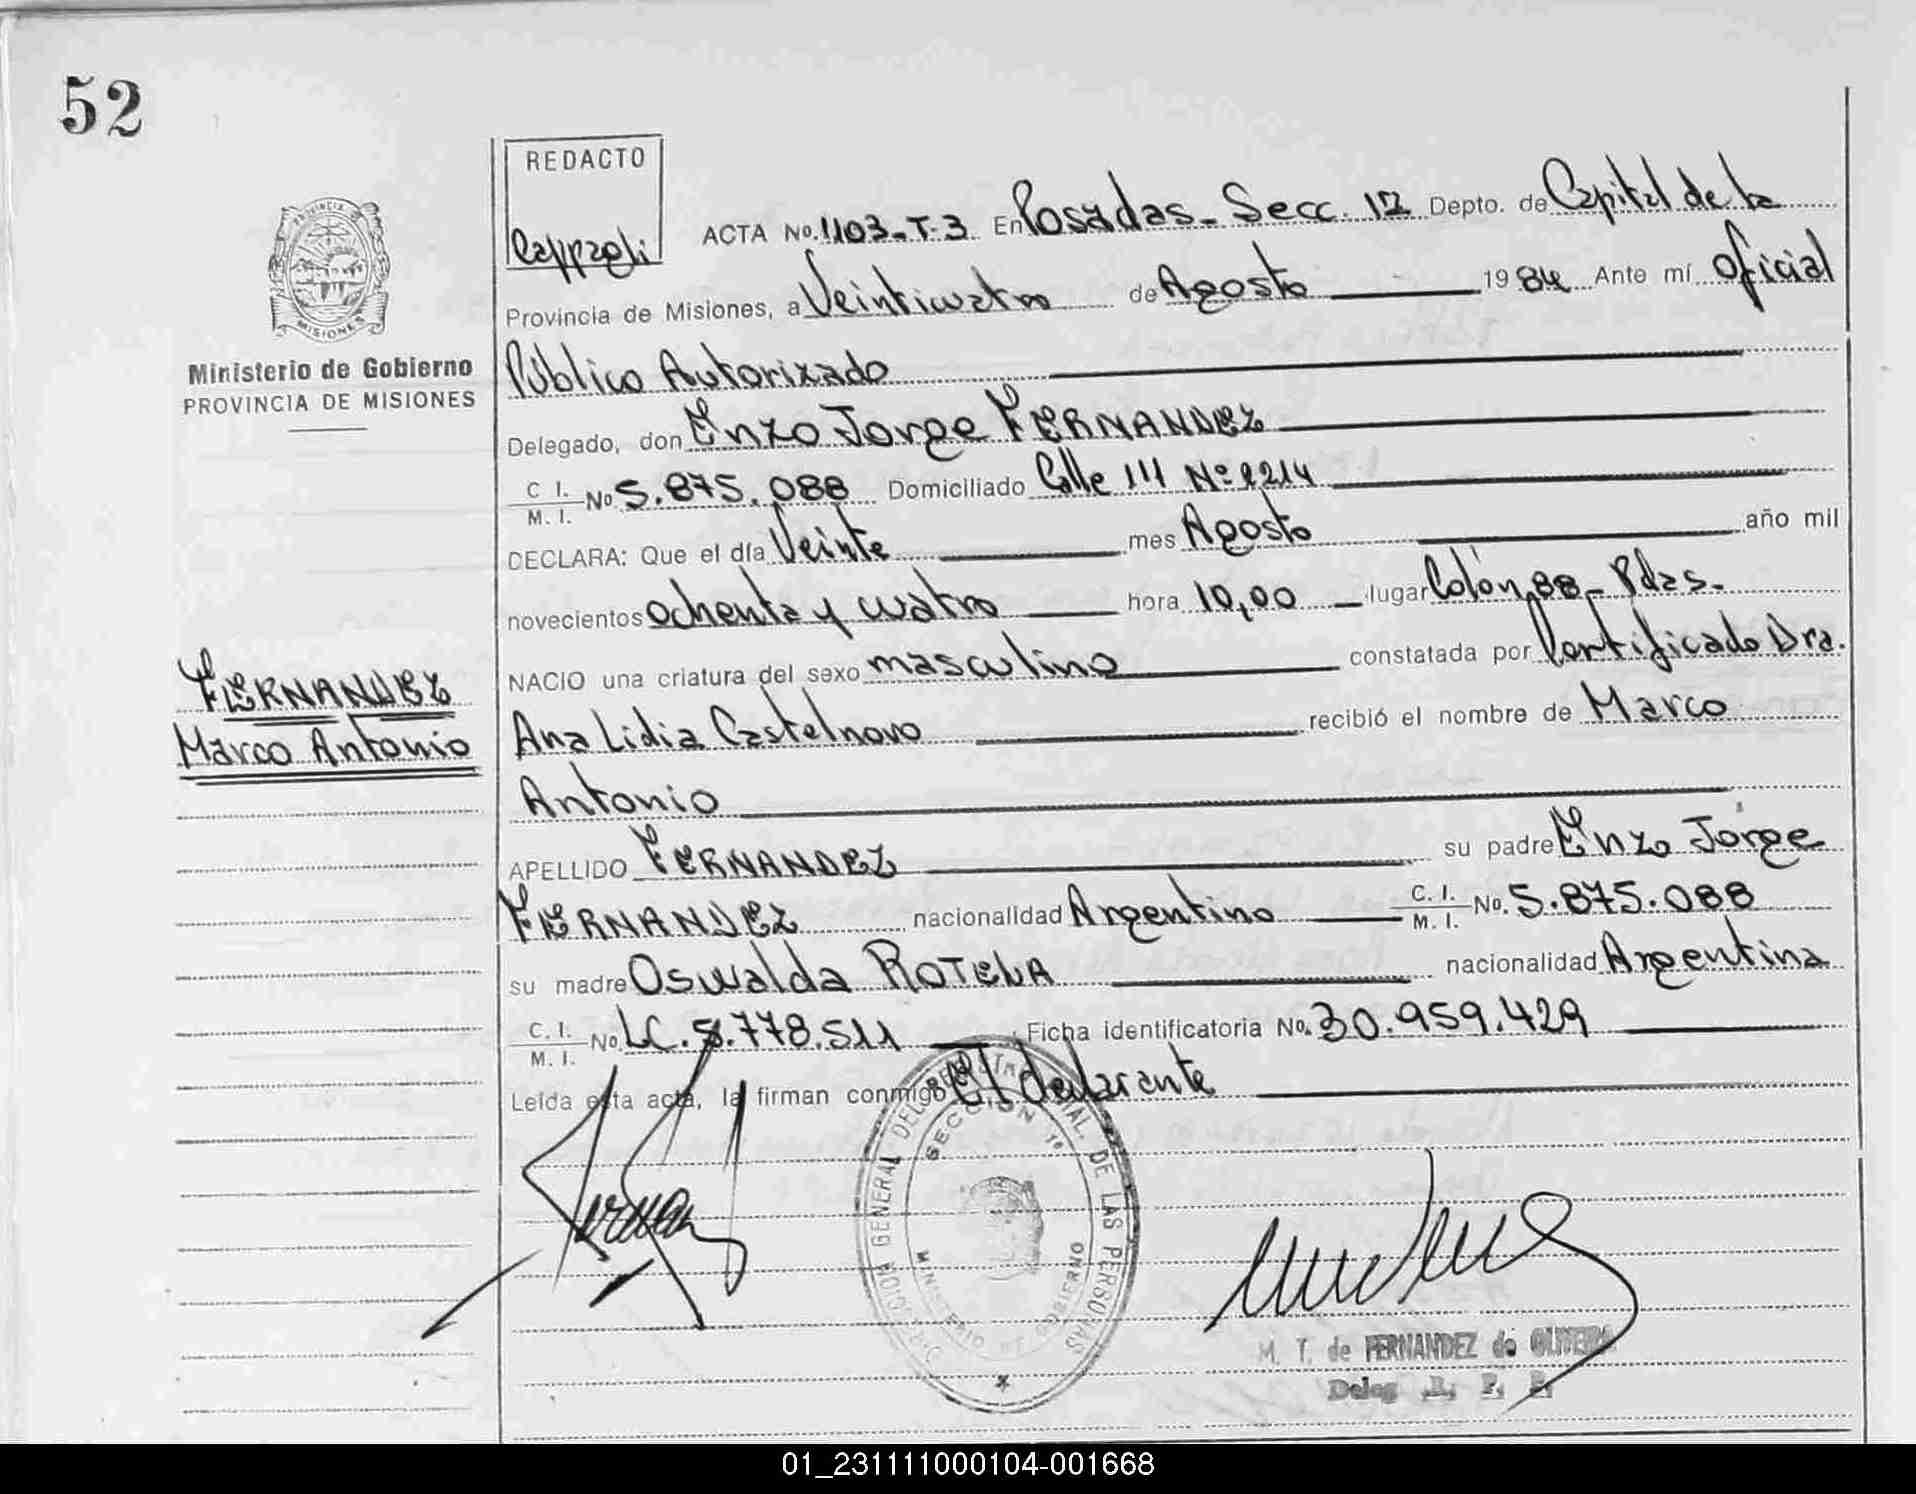 52
REDACTO
PROVINCIA DE
MISIONES
ACTA No. 1103-T-3 En Posadas - Secc. 1ª Depto. de Capital de la
Provincia de Misiones, a Veinticuatro de Agosto 1984 Ante mí Oficial
Ministerio de Gobierno
PROVINCIA DE MISIONES
Público Autorizado
Delegado, don Enzo Jorge FERNANDEZ
C. I. M. I. No. 5.875.088 Domiciliado Calle 111 Nº 2214
DECLARA: Que el día Veinte mes Agosto año mil
novecientos ochenta y cuatro hora 10,00 lugar Colón 88 - Pdas.
NACIO una criatura del sexo masculino constatada por Certificado Dra.
FERNANDEZ
Marco Antonio
Ana Lidia Castelnovo recibió el nombre de Marco
Antonio
APELLIDO FERNANDEZ su padre Enzo Jorge
FERNANDEZ nacionalidad Argentino C. I. M. I. No. 5.875.088
su madre Oswalda ROTELA nacionalidad Argentina
C. I. M. I. No. LC. 5.778.511 Ficha identificatoria No. 30.959.429
Leída esta acta, la firman conmigo El declarante
DIRECCION GENERAL DEL REGISTRO PROVINCIAL DE LAS PERSONAS
SECCION 1ª
MINISTERIO DE GOBIERNO
M. T. de FERNANDEZ de OLIVEIRA
Deleg. R. P. P.
01_231111000104-001668